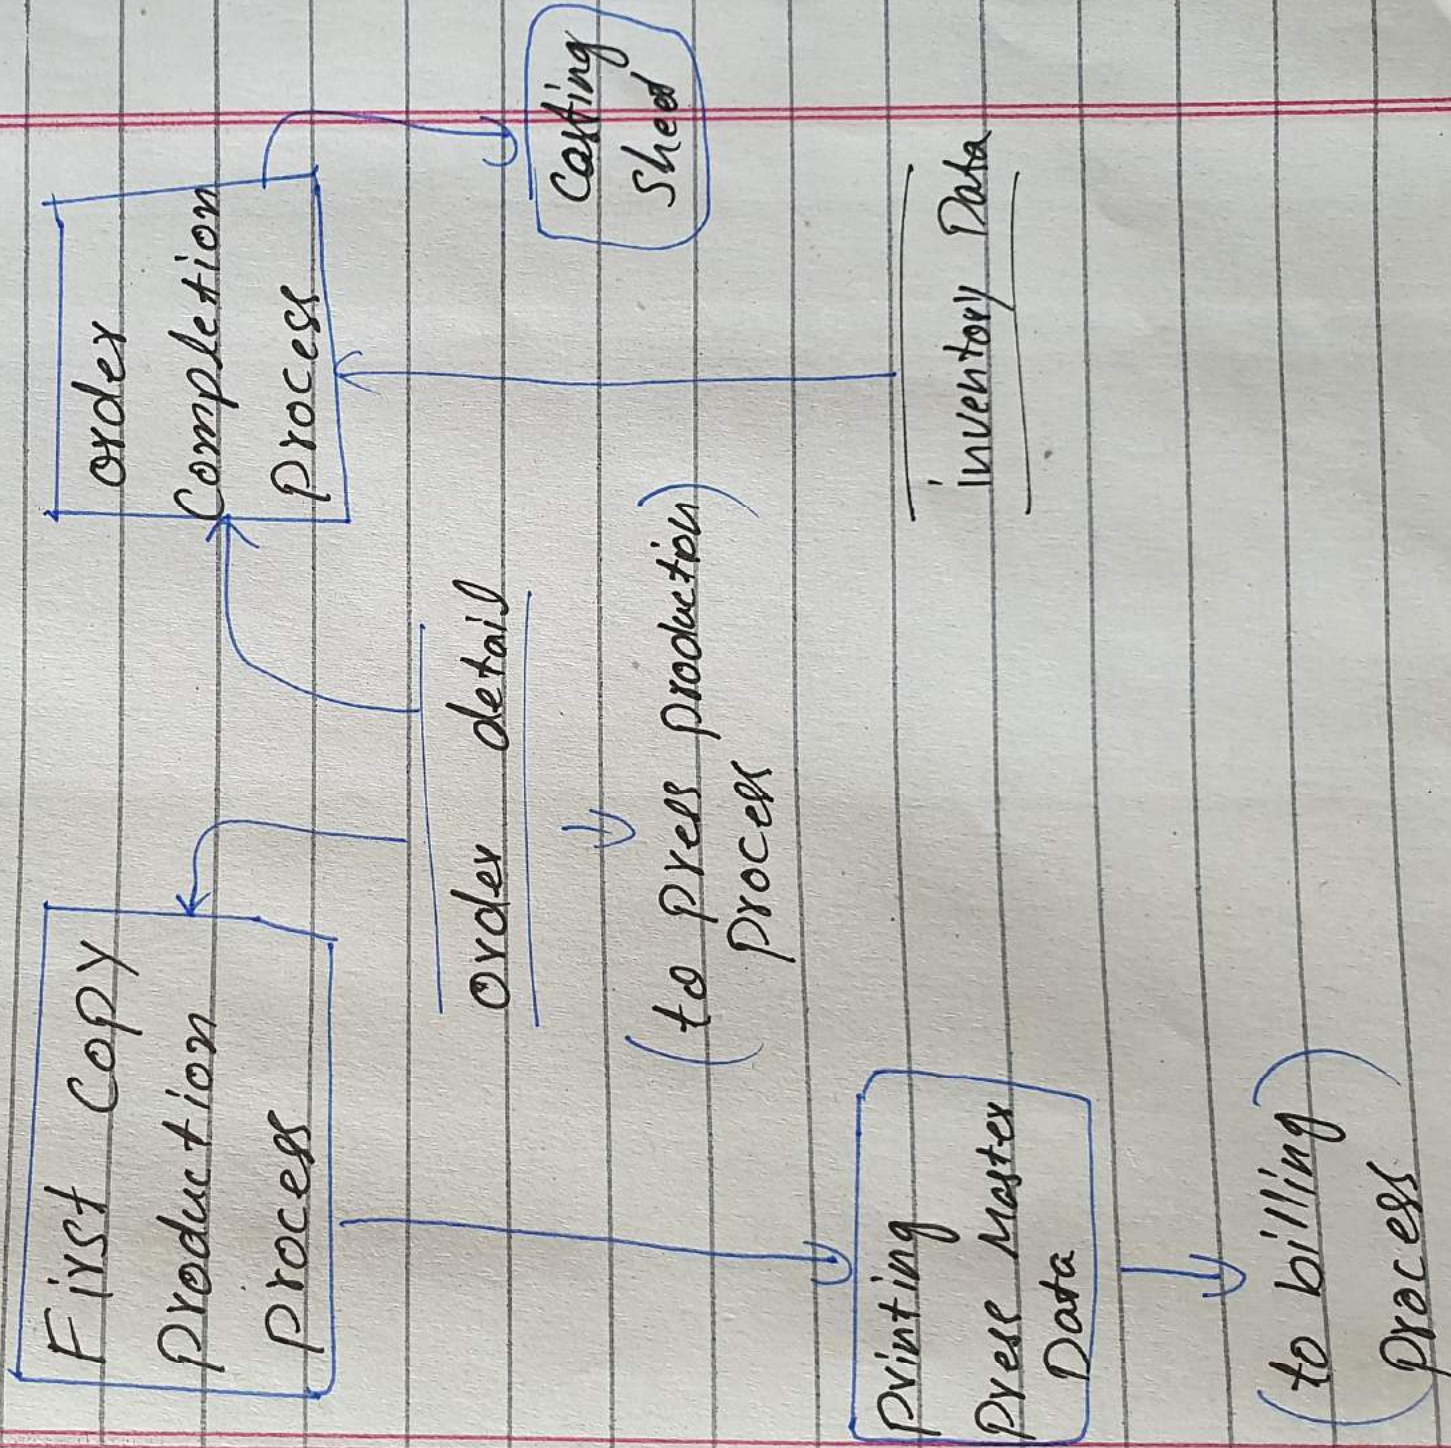 First Copy
Production
Process
order
Completion
Process
order detail
(to press production)
process
Costing
Sheet
Inventory Data
Printing
Press Master
Data
(to billing)
process